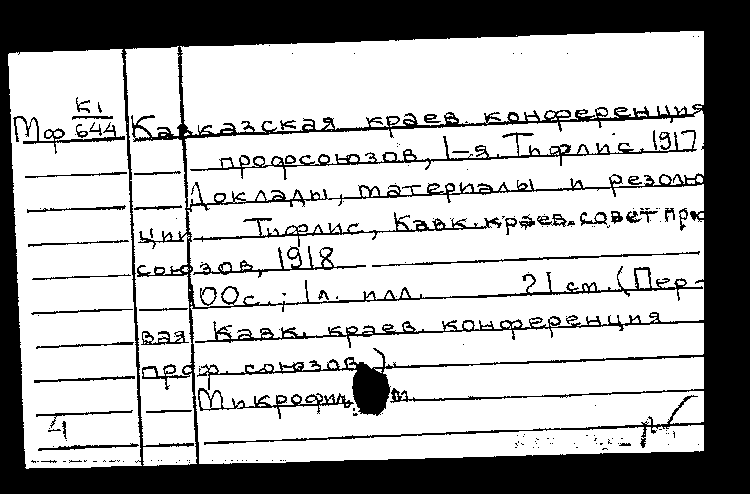 К1
Мф 644 Кавказская краев. конференция
профсоюзов, 1-я. Тифлис. 1917.
Доклады, материалы и резолю
ции. Тифлис, Кавк. краев. совет про
союзов, 1918
100с.; 1л. илл. 21 см. (Пер-
вая Кавк. краев. конференция
проф. союзов.).
4